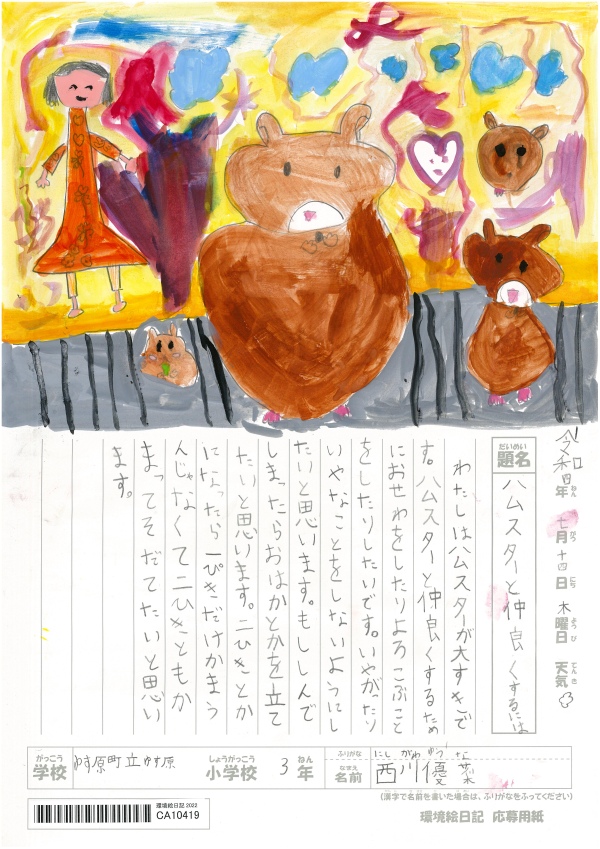 令和四年 七月十四日 木曜日 天気
ねん がつ にち ようび てんき
だいめい
題名 ハムスターと仲良くするには
わたしはハムスターが大すきで
す。ハムスターと仲良くするため
におせわをしたりよろこぶこと
をしたりしたいです。いやがったり
いやなことをしないようにし
たいと思います。もししんで
しまったらおはかとかを立て
たいと思います。二ひきとか
になったら一ぴきだけかまう
んじゃなくて二ひきともか
まってそだてたいと思い
ます。
がっこう しょうがっこう ねん ふりがな にし がわ ゆう な
学校 ゆす原町立ゆす原 小学校 3年 なまえ 名前 西川優菜
(漢字で名前を書いた場合は、ふりがなをふってください)
環境絵日記 2022
CA10419
環境絵日記 応募用紙